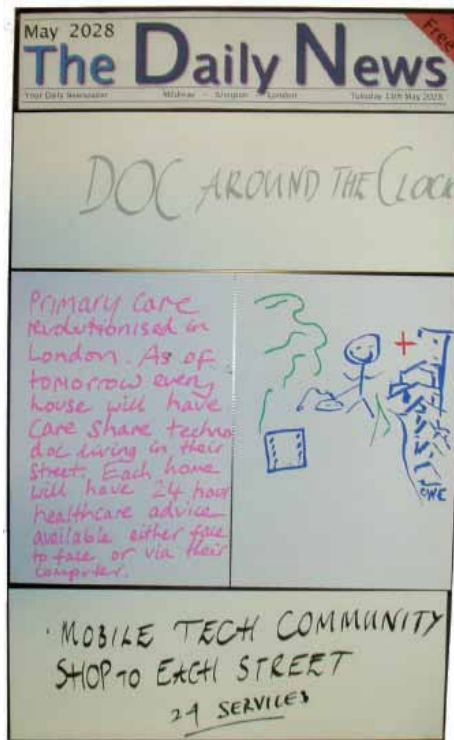 May 2028
Free
The Daily News
Your Daily Newspaper Mildmay - Islington - London Tuesday 13th May 2028
DOC AROUND THE CLOCK
Primary Care
revolutionised in
London. As of
tomorrow every
house will have
Care Share techno
doc living in their
street. Each home
will have 24 hour
healthcare advice
available either face
to face or via their
computer.
MOBILE TECH COMMUNITY
SHOP TO EACH STREET
24 SERVICES